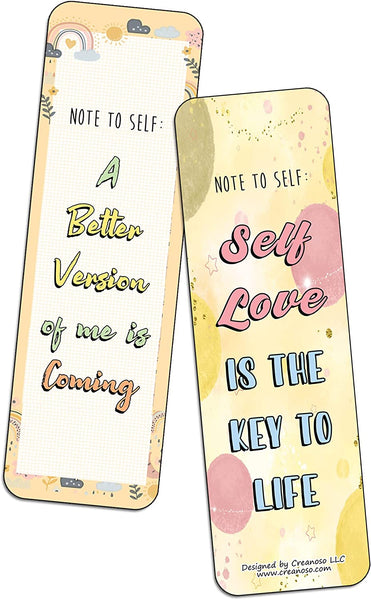 NOTE TO SELF:
A
Better
Version
of me is
Coming
NOTE TO SELF:
Self
Love
IS THE
KEY TO
LIFE
Designed by Creanoso LLC
www.creanoso.com